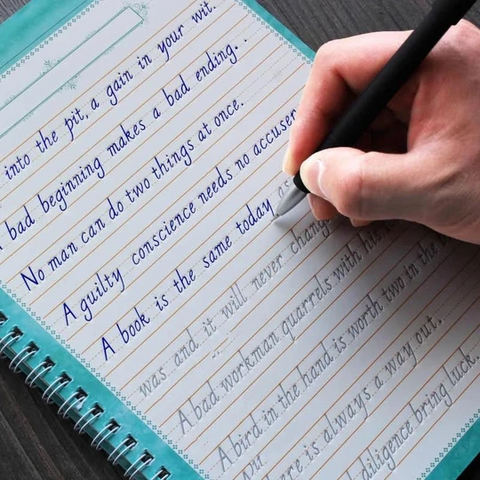 into the pit, a gain in your wit.
bad beginning makes a bad ending..
No man can do two things at once.
A guilty conscience needs no accuser
A book is the same today as
was and it will never chang
A bad workman quarrels with his
A bird in the hand is worth two in the
here is always a way out.
diligence bring luck.